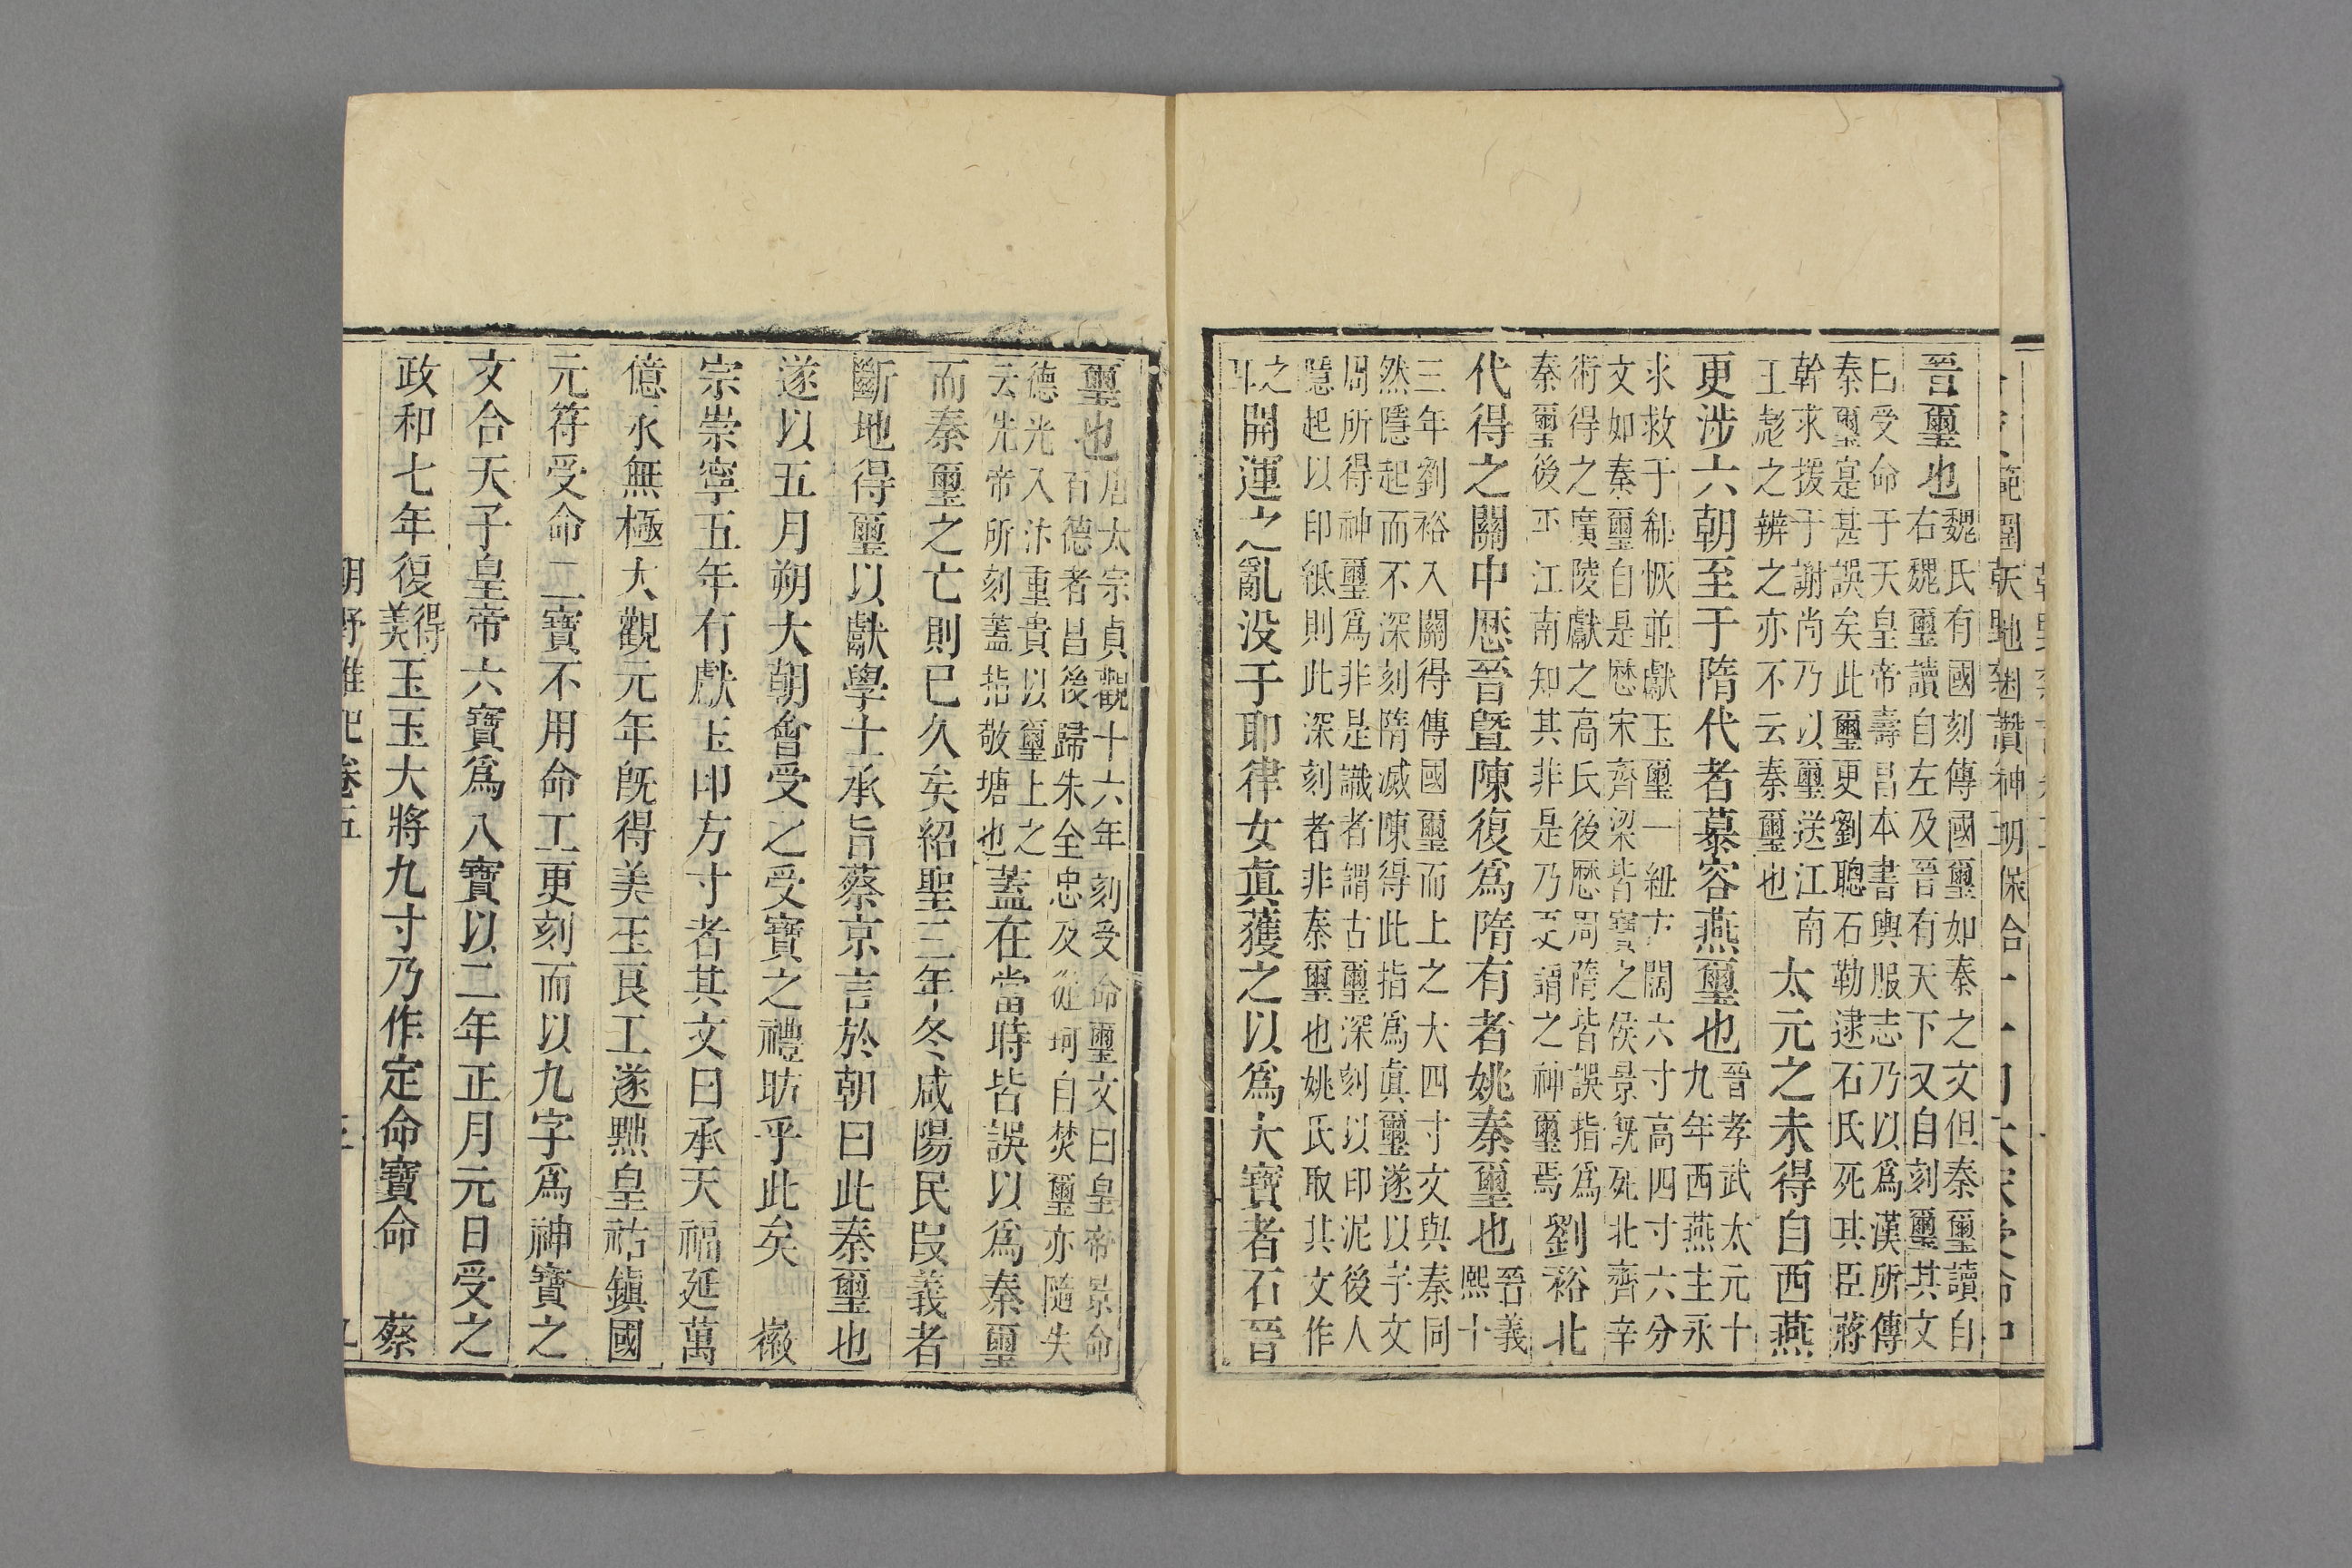 晉璽也魏氏有國刻傳國璽如秦之文但秦璽讀自
右魏璽讀自左及晉有天下又自刻璽其文
曰受命于天皇帝壽昌本書輿服志乃以為漢所傳
秦璽寔甚誤矣此璽更劉聰石勒逮石氏死其臣蔣
幹求援于謝尚乃以璽送江南
王彪之辨之亦不云秦璽也太元之末得自西燕
更涉六朝至于隋代者慕容燕璽也晉孝武太元十
九年西燕主永
求救于郗恢並獻玉璽一紐方闊六寸高四寸六分
文如秦璽自是厯宋齊梁皆寶之侯景旣死北齊辛
術得之廣陵獻之高氏後厯周隋皆誤指爲
秦璽後平江南知其非是乃更謂之神璽焉劉裕北
代得之關中厯晉暨陳復爲隋有者姚秦璽也晉義
熙十
三年劉裕入關得傳國璽而上之大四寸文與秦同
然隱起而不深刻隋滅陳得此指爲眞璽遂以宇文
周所得神璽爲非是識者謂古璽深刻以印泥後人
隱起以印紙則此深刻者非秦璽也姚氏取其文作
之
耳開運之亂没于耶律女眞獲之以爲大寶者石晉
璽也唐太宗貞觀十六年刻受命璽文曰皇帝景命
有德者昌後歸朱全忠及從珂自焚璽亦隨失
德光入汴重貴以璽上之
云先帝所刻蓋指敬塘也蓋在當時皆誤以爲秦璽
而秦璽之亡則已久矣紹聖三年冬咸陽民叚義者
斷地得璽以獻學士承旨蔡京言於朝曰此秦璽也
遂以五月朔大朝會受之受寶之禮昉乎此矣 徽
宗崇寧五年有獻玉印方寸者其文曰承天福延萬
億永無極大觀元年旣得美玉良工遂黜皇祜鎭國
元符受命二寶不用命工更刻而以九字爲神寶之
文合天子皇帝六寶爲八寶以二年正月元日受之
政和七年復得美玉玉大將九寸乃作定命寶命 蔡
朝野雜記卷五